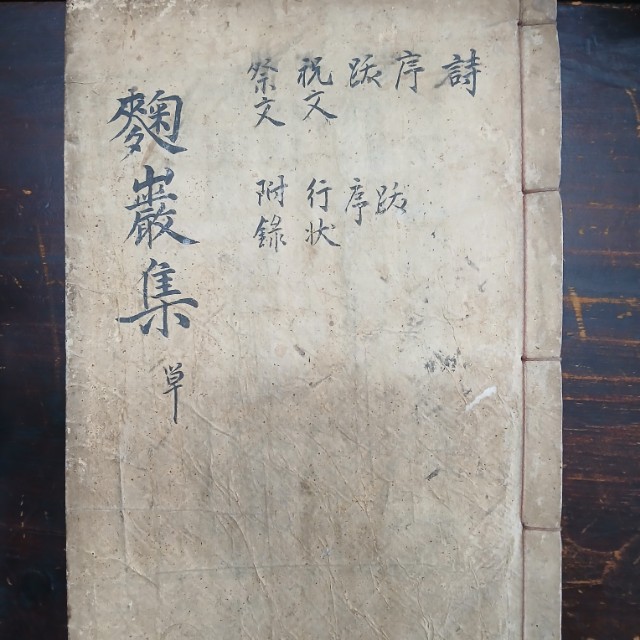 詩
序 跋
跋 序
祝文 行状
祭文 附錄
麴巖集 単